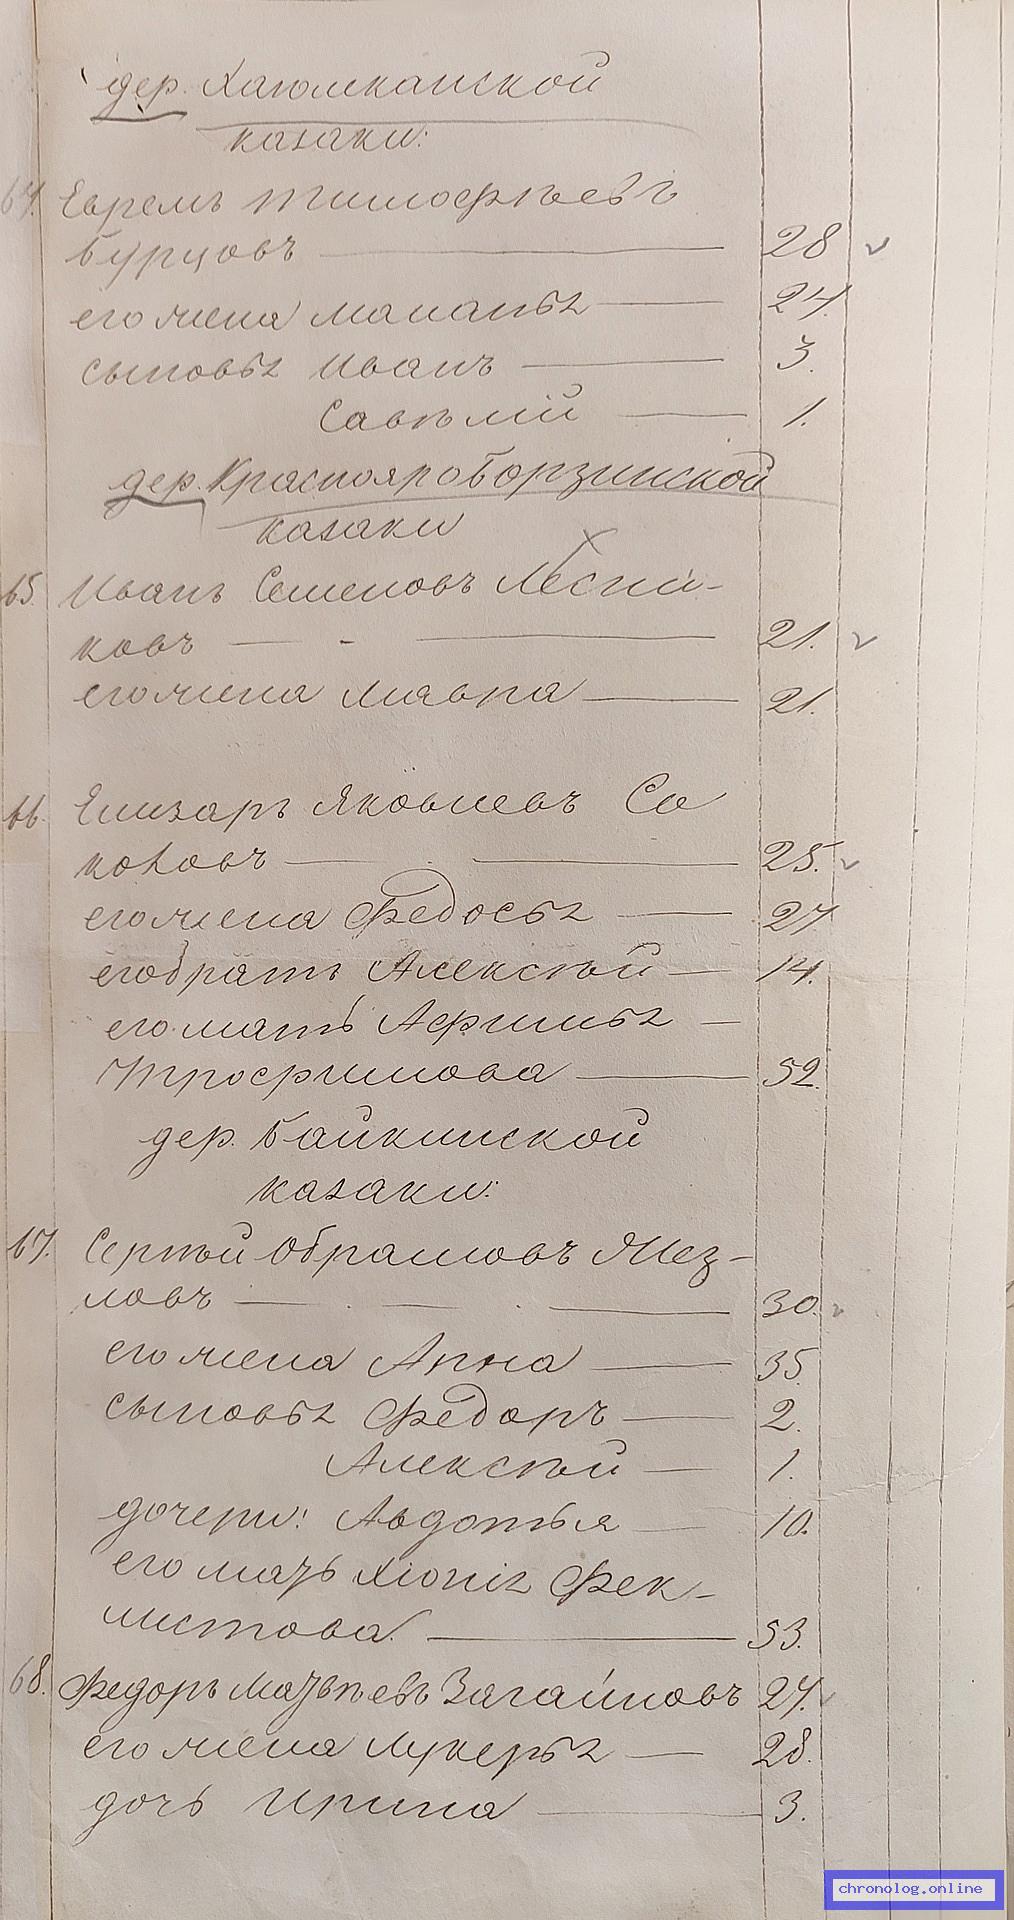 дер. Хаюмканской
казаки:
64. Ефремъ Тимофѣевъ
Бурцовъ 28
его жена Маланья 24.
сыновья Иванъ 3.
Савѣлій 1.
дер. Красноярово Борзинской
казаки
65. Иванъ Семеновъ Лесни-
ковъ 21.
его жена Мавра 21.
66. Елизаръ Яковлевъ Со
коловъ 25.
его жена Федосья 27
его братъ Алексѣй 14.
его мать Афимья
Трофимова 52.
дер. Байкинской
казаки:
67. Сергѣй Обрамовъ
ловъ 30.
его жена Анна 35.
сыновья Федоръ 2.
Алексѣй 1.
дочери: Авдотья 10.
его мать Хіонія Фек-
листова. 53.
68. Федоръ Матвѣевъ Загайновъ 27.
его жена Лукерья 28.
дочь Ирина 3.
chronolog.online